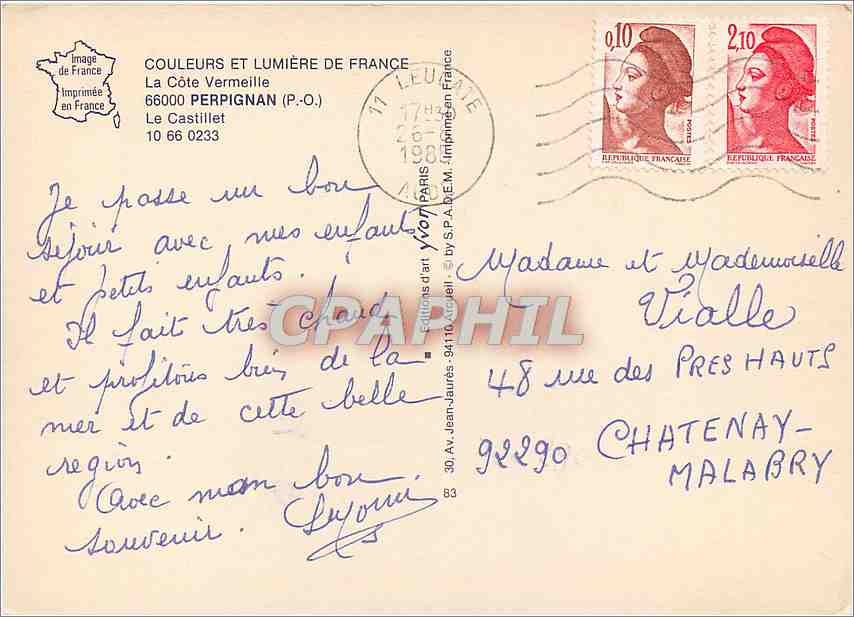 Image
de France
Imprimée
en France
COULEURS ET LUMIÈRE DE FRANCE
La Côte Vermeille
66000 PERPIGNAN (P.-O.)
Le Castillet
10 66 0233
11 LEUCATE
17H3
26-
198
AUDE
0,10
POSTES
REPUBLIQUE FRANÇAISE
2,10
POSTES
REPUBLIQUE FRANÇAISE
Je passe un bon
séjour avec mes enfants
et petits enfants.
Il fait très chaud
et profitons bien de la
mer et de cette belle
region.
Avec mon bon
souvenir.
30, Av. Jean-Jaurès - 94110 Arcueil - © by S.P.A.D.E.M. - Imprimé en France
■ Editions d'art yvon PARIS
83
Madame et Mademoiselle
Vialle
48 rue des PRES HAUTS
92290 CHATENAY-
MALABRY
CPAPHIL